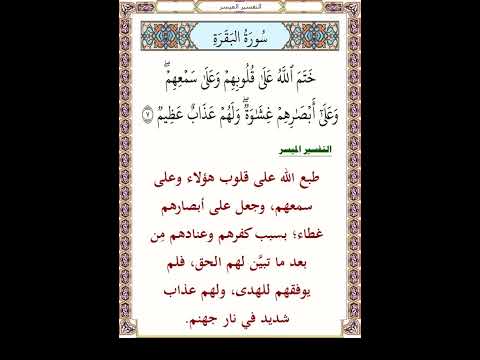 التفسير الميسر
سُورَةُ البَقَرَةِ
خَتَمَ ٱللَّهُ عَلَىٰ قُلُوبِهِمْ وَعَلَىٰ سَمْعِهِمْۖ
وَعَلَىٰٓ أَبْصَٰرِهِمْ غِشَٰوَةٌۖ وَلَهُمْ عَذَابٌ عَظِيمٌ ٧
التفسير الميسر
طبع الله على قلوب هؤلاء وعلى
سمعهم، وجعل على أبصارهم
غطاء؛ بسبب كفرهم وعنادهم مِن
بعد ما تبيَّن لهم الحق، فلم
يوفقهم للهدى، ولهم عذاب
شديد في نار جهنم.